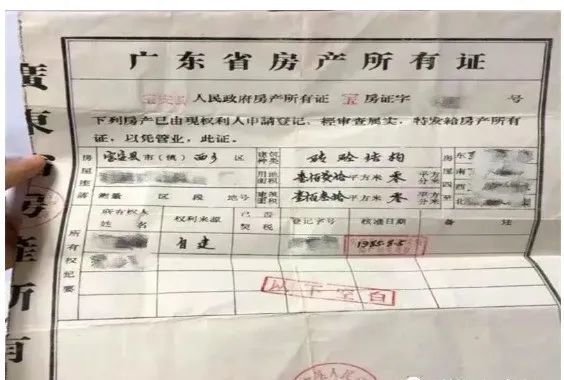 广东省房产所有证
宝安县人民政府房产所有证 宝 房证字 号
下列房产已由现权利人申請登记，经审查属实，特发给房产所有
证，以凭管业，此证。
房屋座落 宝安县市（镇）西乡 区 建筑种类 砖砼结构 房屋四至 东
用地面积 壹佰叁拾平方米 零 平方分米 南
测量 区段 地号 建筑面积 壹佰叁拾平方米 零 平方分米 西
北
所有权人姓名 权利来源 已否契税 登记字号 核准日期 备 註
所有权纪要 自建 1985.8.5
以下空白
廣東省房產所有